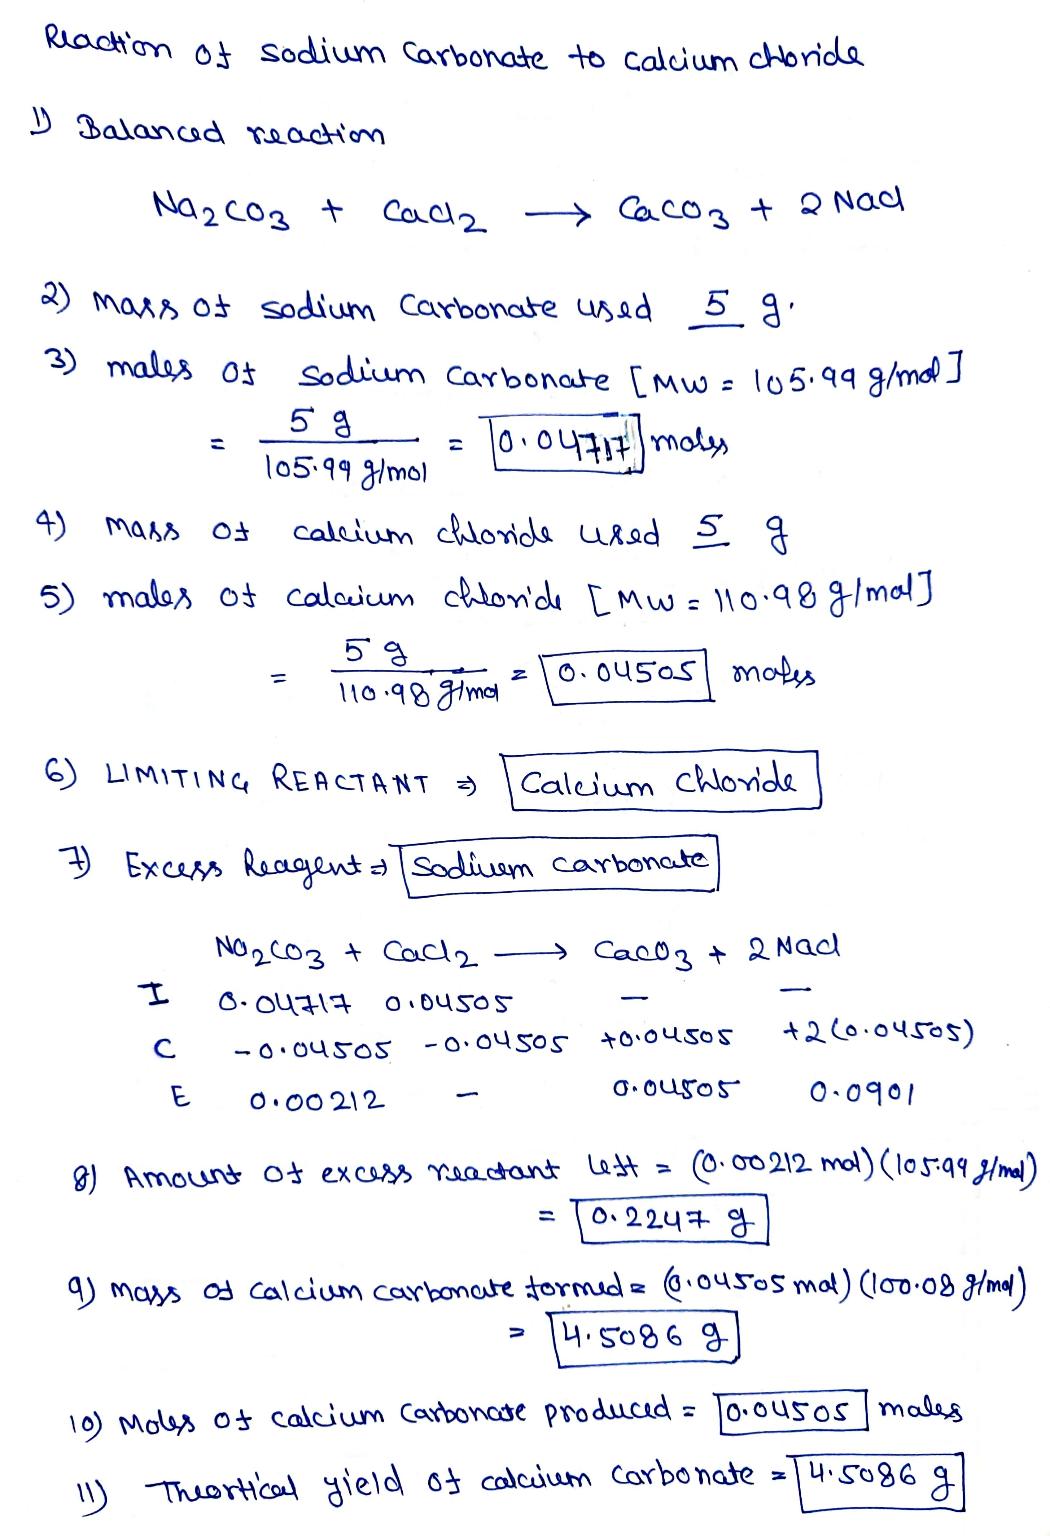 Reaction of sodium Carbonate to calcium chloride
1) Balanced reaction
Na2CO3 + CaCl2 → CaCO3 + 2 NaCl
2) Mass of sodium Carbonate used 5 g.
3) moles of sodium carbonate [MW = 105.99 g/mol]
= 5 g / 105.99 g/mol = 0.04717 moles
4) Mass of calcium chloride used 5 g
5) moles of calcium chloride [MW = 110.98 g/mol]
= 5 g / 110.98 g/mol = 0.04505 moles
6) LIMITING REACTANT ⇒ Calcium chloride
7) Excess Reagent ⇒ Sodium carbonate
Na2CO3 + CaCl2 → CaCO3 + 2 NaCl
I 0.04717 0.04505 - -
C -0.04505 -0.04505 +0.04505 +2(0.04505)
E 0.00212 - 0.04505 0.0901
8) Amount of excess reactant left = (0.00212 mol)(105.99 g/mol)
= 0.2247 g
9) Mass of calcium carbonate formed = (0.04505 mol)(100.08 g/mol)
= 4.5086 g
10) Moles of calcium Carbonate produced = 0.04505 moles
11) Theortical yield of calcium carbonate = 4.5086 g